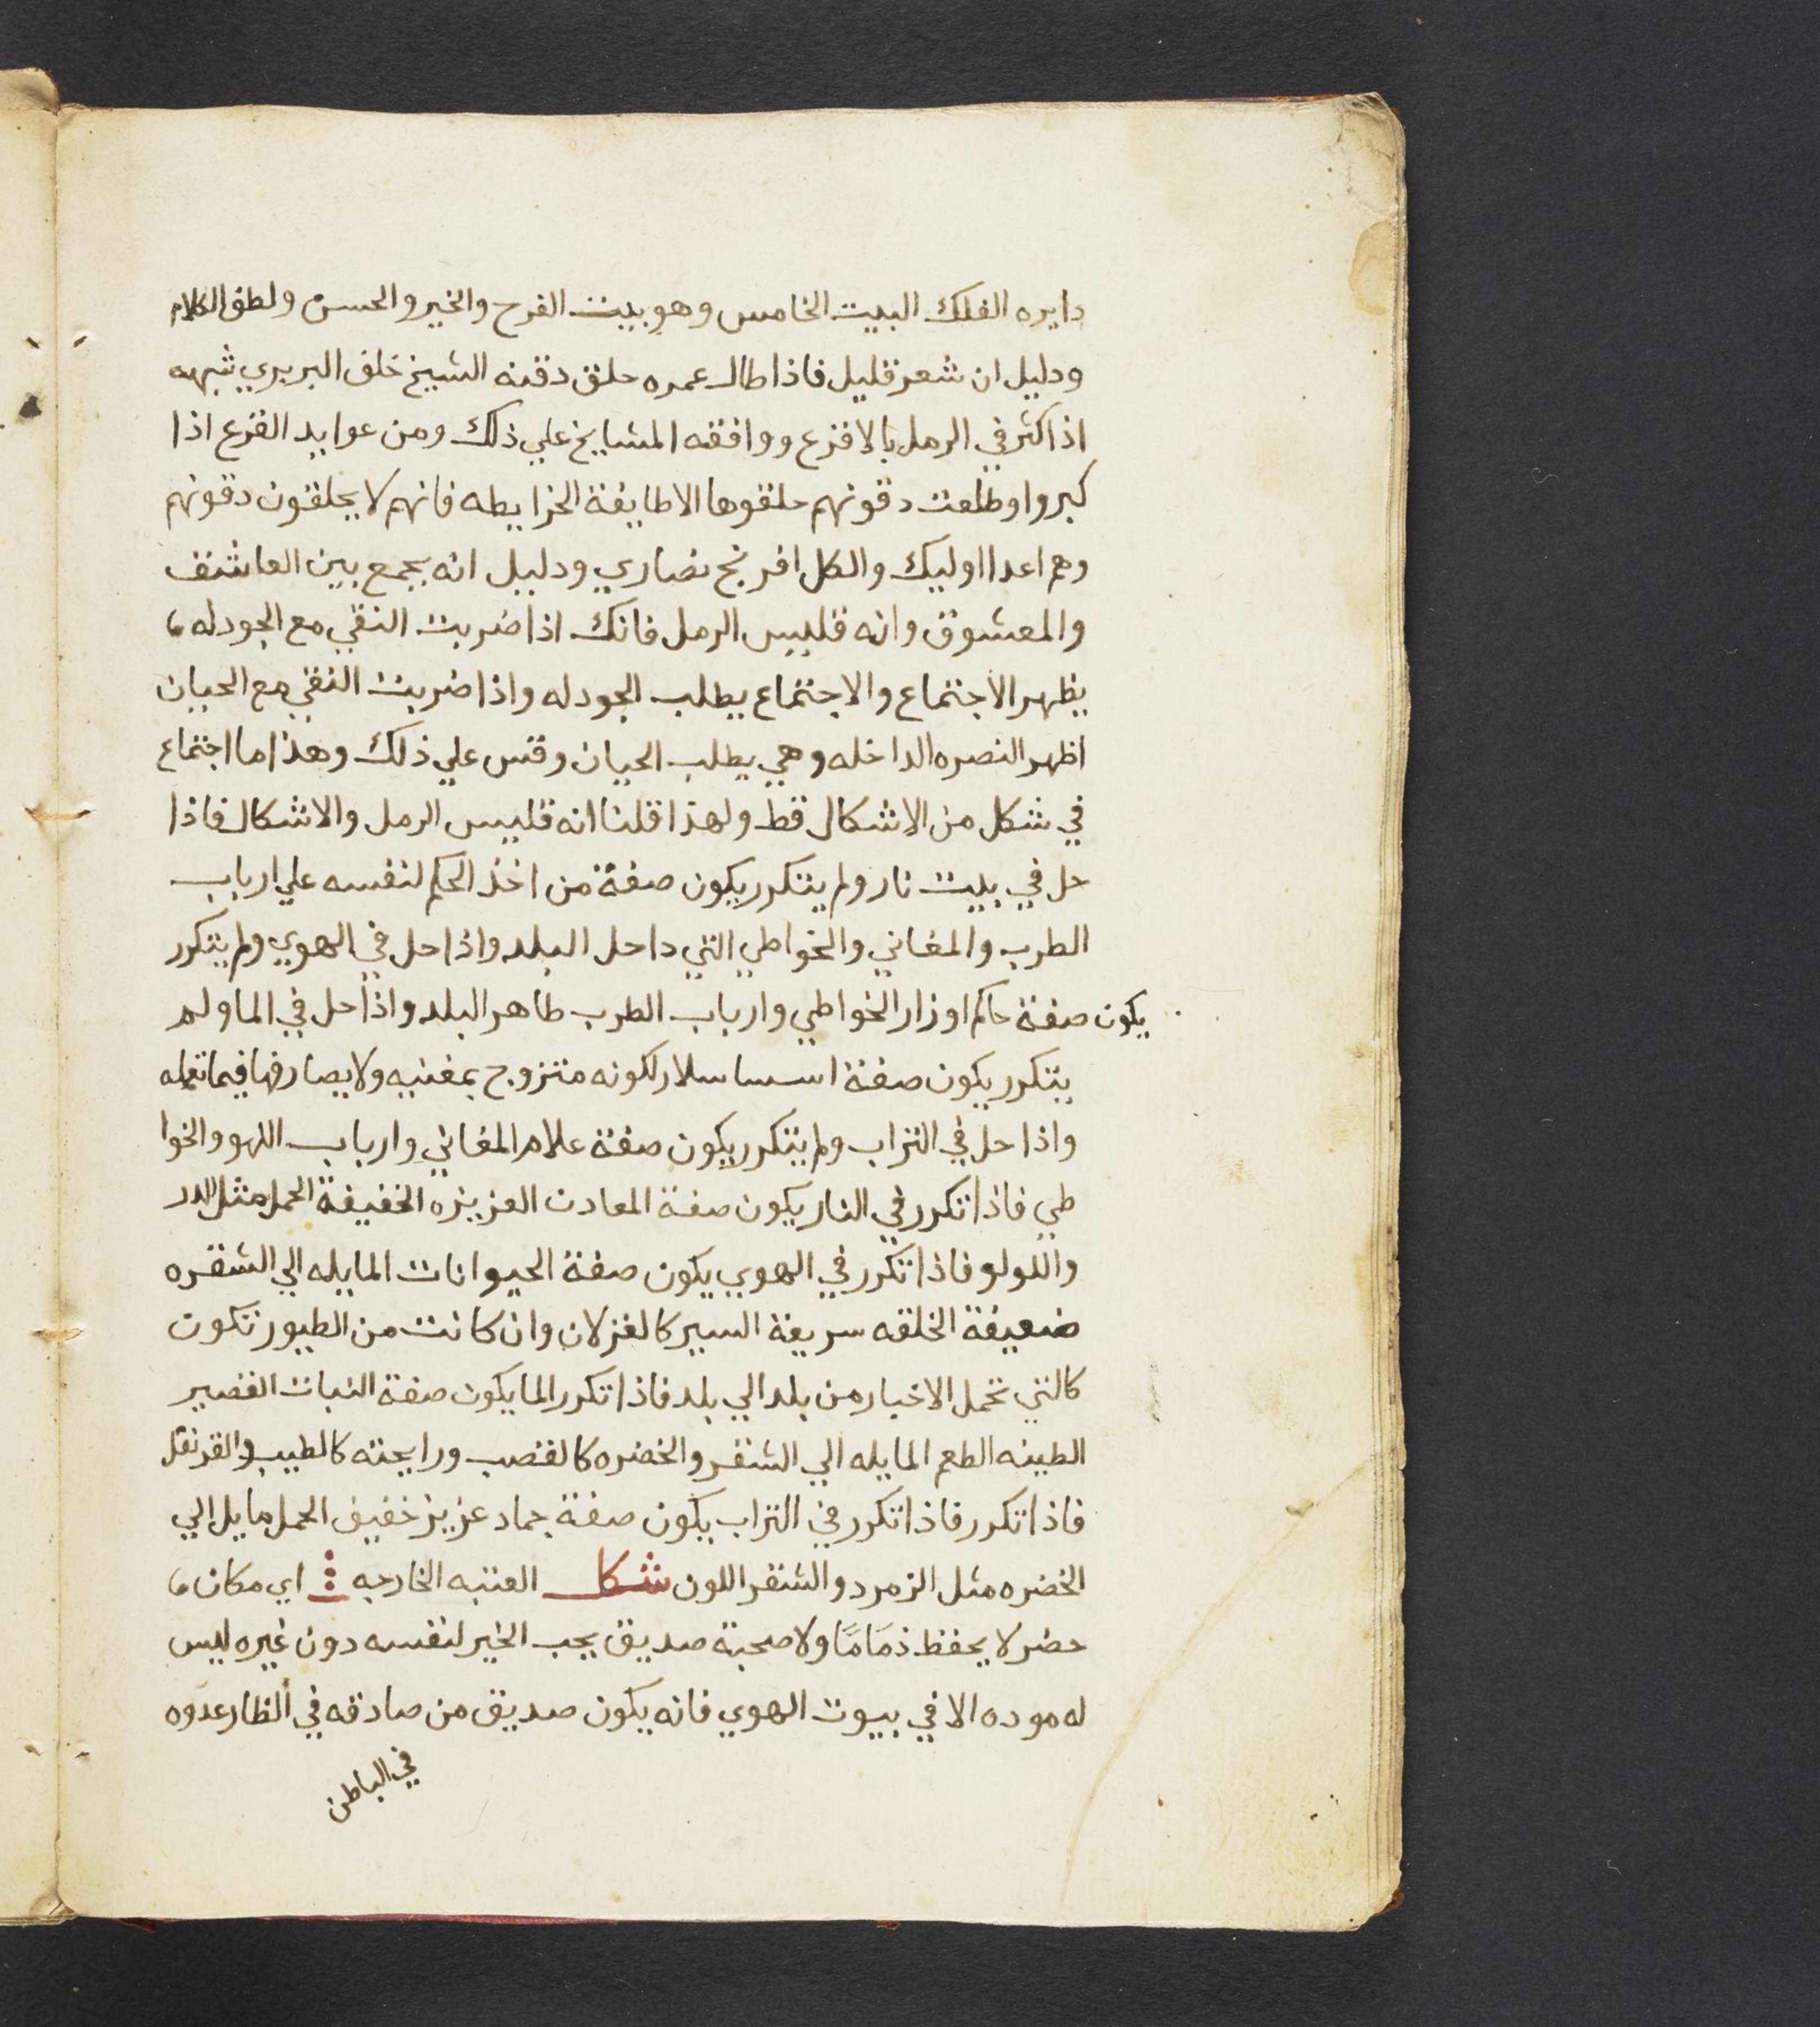 دايره الفلك البيت الخامس وهو بيت الفرح والخير والحسن ولطف الكلام
ودليل ان شعر قليل فاذا طال عمره حلق دقنه الشيخ خلف البربري شبهه
اذا كثر في الرمل بالافزع ووافقه المشايخ علي ذلك ومن عوايد القزع اذا
كبروا وطلعت دقونهم حلقوها الا طايفة الخرايطه فانهم لا يحلقون دقونهم
وهم اعدا اوليك والكل افرنج نصاري ودليل انه يجمع بين العاشق
والمعشوق وانه قلبيس الرمل فانك اذا ضربت النقي مع الجودله
يظهر الاجتماع والاجتماع يطلب الجودله واذا ضربت النقي مع الحيان
اظهر النصره الداخله وهي يطلب الحيان وقس علي ذلك وهذا ما اجتماع
في شكل من الاشكال قط ولهذا قلنا انه قلبيس الرمل والاشكال فاذا
حل في بيت نار ولم يتكرر يكون صفة من اخذ الحكم لنفسه علي ارباب
الطرب والمغاني والخواطي التي داحل البلد واذا حل في الهوي ولم يتكرر
يكون صفة حاكم اوزار الخواطي وارباب الطرب طاهر البلد واذا حل في الما ولم
يتكرر يكون صفة اسسا سلار لكونه متزوج بمغنيه ولا يصارفها فيما تعمله
واذا حل في التراب ولم يتكرر يكون صفة علام المغاني وارباب اللهو والخوا
طي فاذا تكرر في النار يكون صفة المعادن العزيزه الخفيفة الحمل مثل الدر
واللولو فاذا تكرر في الهوي يكون صفة الحيوانات المايله الي الشقره
ضعيفة الخلقه سريعة السير كالغزلان وان كانت من الطيور تكون
كالتي تحمل الاخبار من بلد الي بلد فاذا تكرر الما يكون صفة النبات القصير
الطينه الطعم المايله الي الشقر والخضره كالقصب ورايحته كالطيب والقرنفل
فاذا تكرر فاذا تكرر في التراب يكون صفة جماد عزيز خفيف الحمل مايل الي
الخضره مثل الزمرد والشقر اللون شكل العتبه الخارجه اي مكان
حضر لا يحفظ ذمَامًا ولا صحبة صديق يحب الخير لنفسه دون غيره ليس
له موده الا في بيوت الهوي فانه يكون صديق من صادقه في الظار عدوه
في الباطن